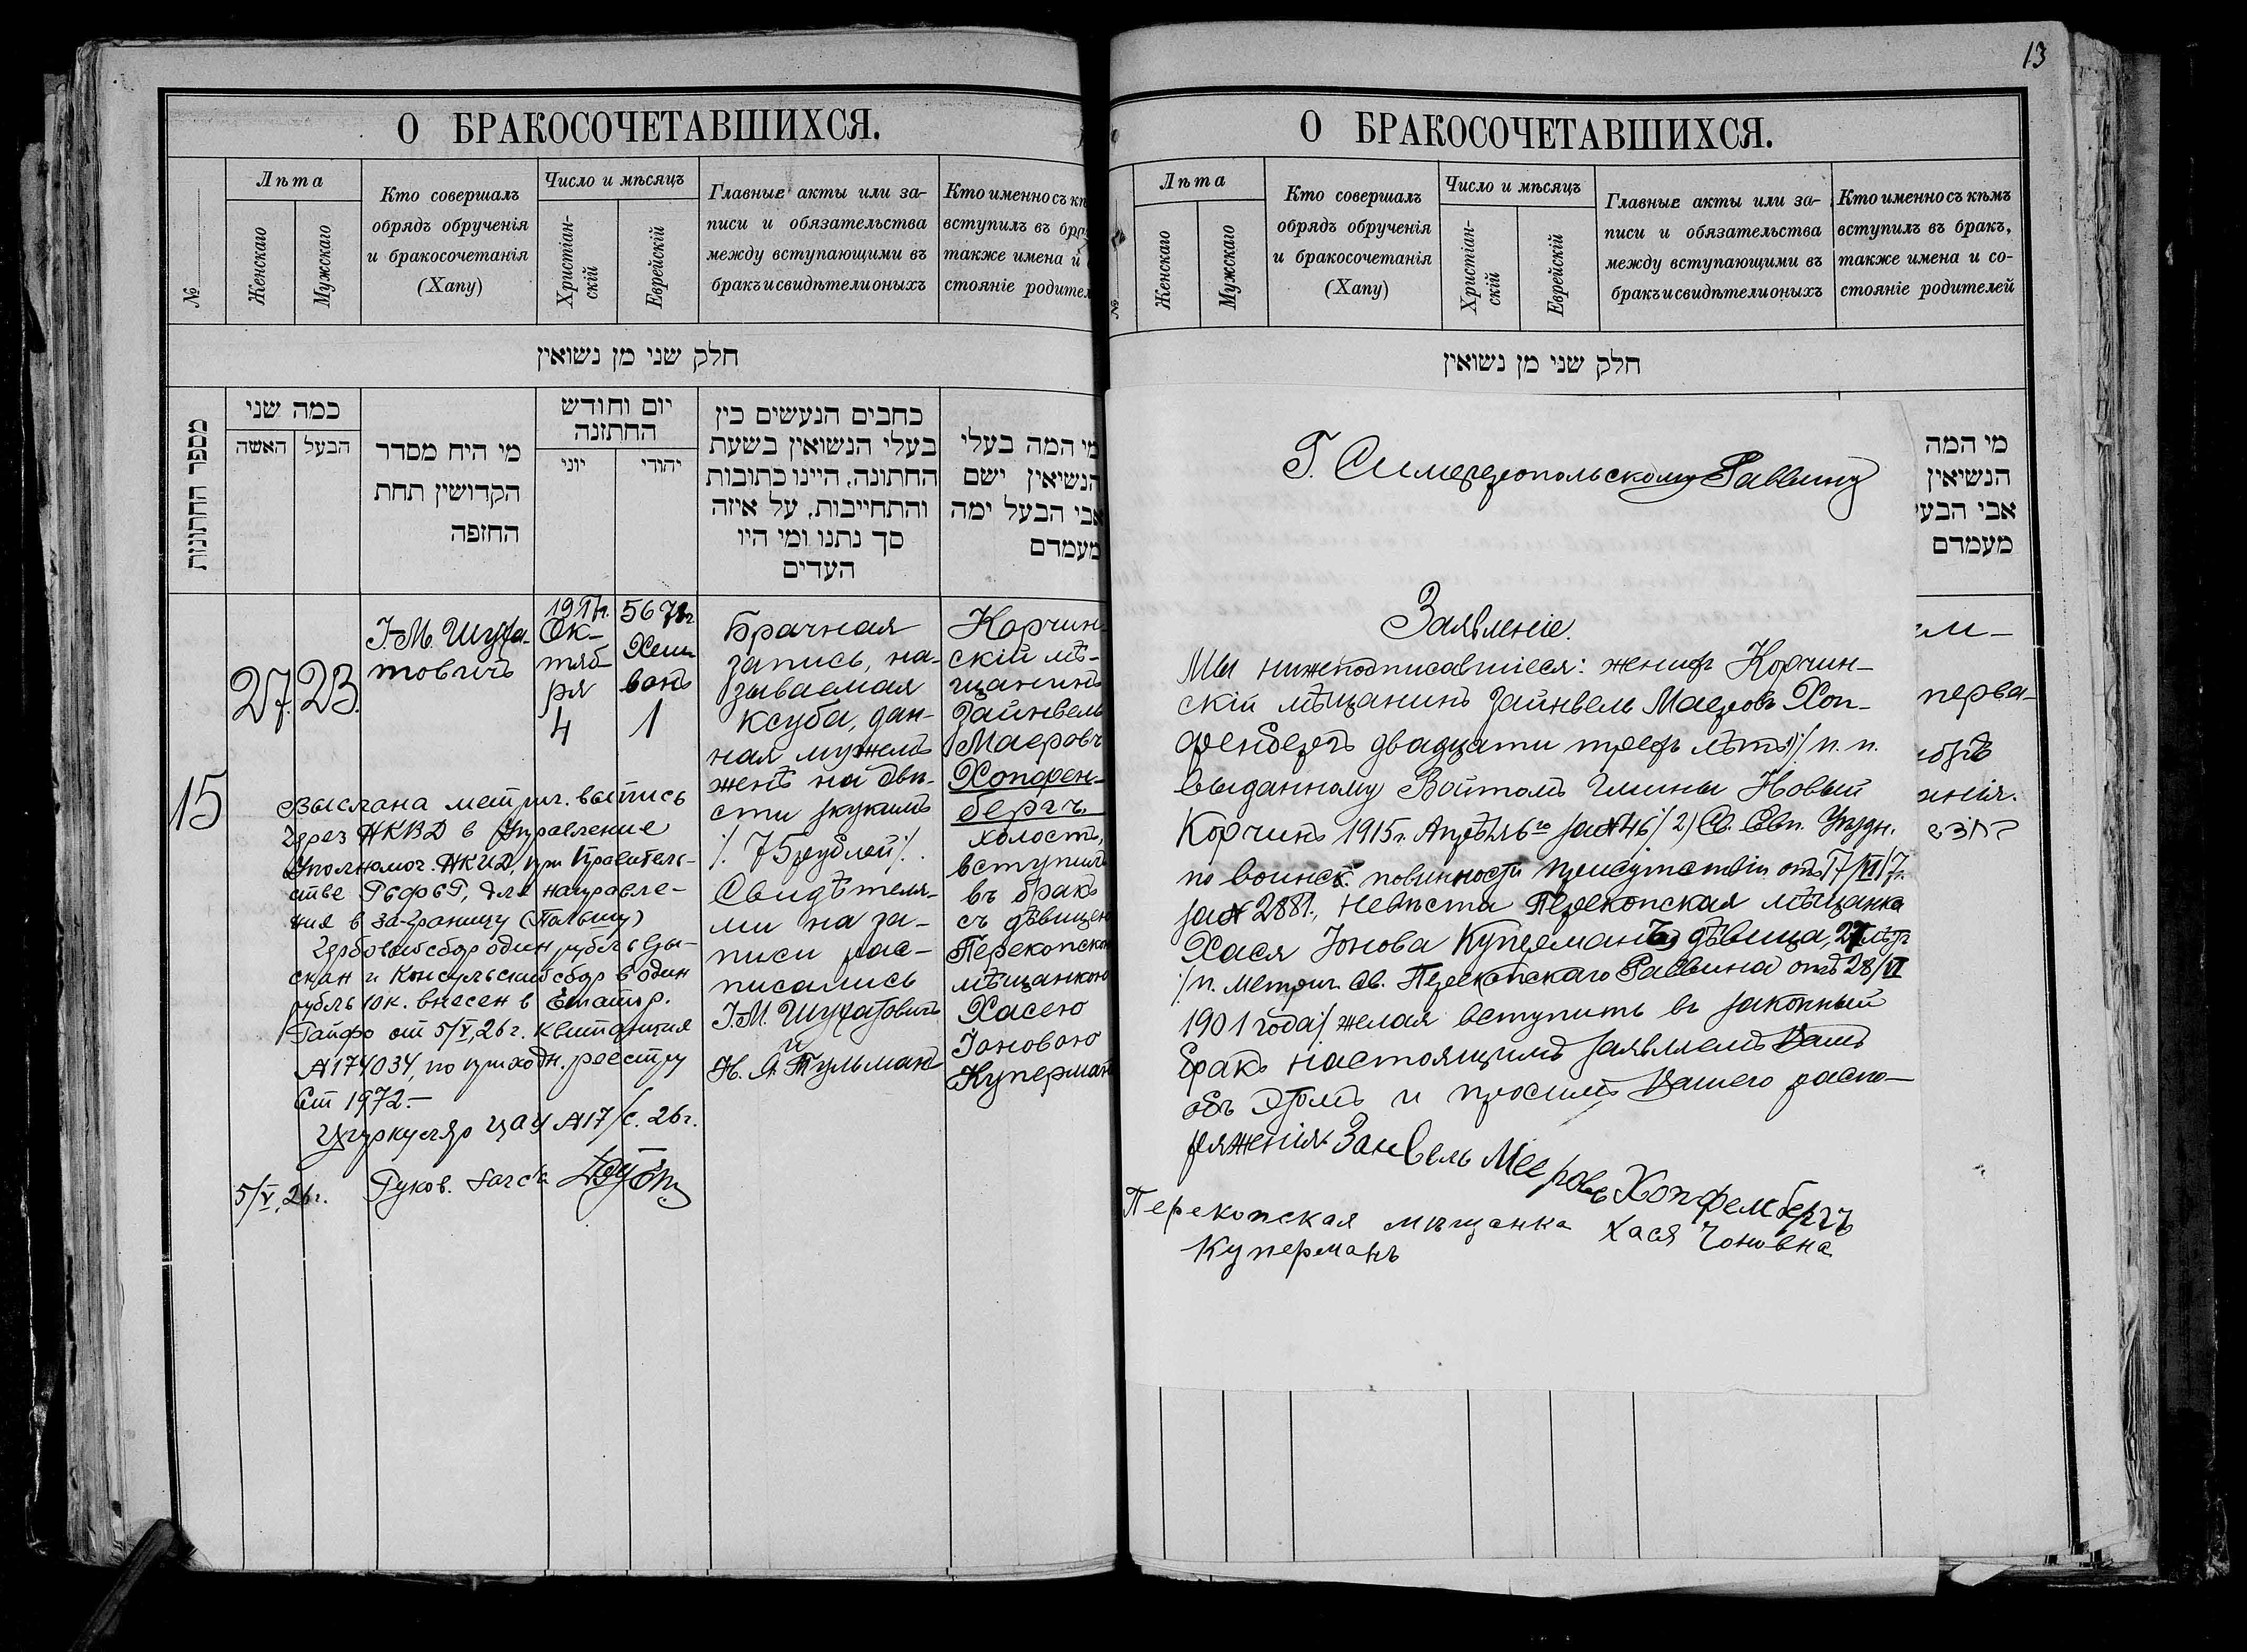 О БРАКОСОЧЕТАВШИХСЯ.
№
Лѣта
Женскаго
Мужскаго
Кто совершалъ
обрядъ обрученія
и бракосочетанія
(Хапу)
Число и мѣсяцъ
Христіан-
скій
Еврейскій
Главные акты или за-
писи и обязательства
между вступающими въ
бракъ и свидѣтели оныхъ
Кто именно съ
вступилъ въ
также имена и
стояніе
חלק שני מן נשואין
מספר החתונות
כמה שני
האשה
הבעל
מי היח מסדר
הקדושין תחת
החזפה
יום וחודש
החתזנה
יוני
יהודי
כחבים הנעשים כין
בעלי הנשואין בשעת
החתונה, היינו כתובות
והתחייבות, על איזה
סך נתנו ומי היו
העדים
מי המה בעלי
הנשיאין ישם
אבי הבעל ימה
מעמדם
15
27.
23.
І-М. Шуха-
товичъ
1917г.
Ок-
тяб-
ря
4
5678г
Хеш-
ванъ
1
Брачная
запись, на-
зываемая
ксуба, дан-
ная мужемъ
женѣ на дви-
сти зукимъ
/. 75 рублей /.
Свидѣтеля-
ми на за-
писи рас-
писались
І.-М. Шухатовичъ
и
Н. Я. Тульманъ
Корчин-
скій мѣ-
щанинъ
Зайнвель
Маеровъ
Хопфен-
бергъ.
холостъ,
вступилъ
въ бракъ
съ дѣвицею
Перекопскою
мѣщанкою
Хасею
Іоновою
Куперманъ
Выслана метрич. выпись
через НКВД в Управление
Уполномоч. НКИД, при Правитель-
стве РСФСР, для направле-
ния в за-границу (Польшу)
Гербовый сбор один рубль взы-
скан и Консульский сбор в один
рубль 10 к. внесен в
от 5/V, 26 г. квитанция
№174034, по приходн. реестру
Ст 1972.-
Циркуляр ЦАУ №17/с. 26г.
5/V, 26г.
Руков.
13
О БРАКОСОЧЕТАВШИХСЯ.
№
Лѣта
Женскаго
Мужскаго
Кто совершалъ
обрядъ обрученія
и бракосочетанія
(Хапу)
Число и мѣсяцъ
Христіан-
скій
Еврейскій
Главные акты или за-
писи и обязательства
между вступающими въ
бракъ и свидѣтели оныхъ
Кто именно съ кѣмъ
вступилъ въ бракъ,
также имена и со-
стояніе родителей
חלק שני מן נשואין
מי המה
הנשיאין
אבי הבעי
מעמדם
Г. Симферопольскому Раввину
Заявленіе.
Мы нижеподписавшіеся: женихъ Корчин-
скій мѣщанинъ Зайнвель Маеровъ Хоп-
фенбергъ двадцати трехъ лѣтъ 1)/ п. п.
выданному Войтомъ Гмины Новый
Корчинъ 1915г. Апрѣля 6го за №46/ 2) Св. Евп. Уѣздн.
по воинск. повинности присутствія отъ 17/VI 17г.
за № 2881., невѣста Перекопская мѣщанка
Хася Іонова Куперманъ дѣвица, 27 лѣтъ
/п. метрич. св. Перекопскаго Раввина отъ 28/VI
1901 года/ желая вступить въ законный
бракъ настоящимъ заявляемъ Вамъ
объ этомъ и просимъ Вашего распо-
ряженія. Занвель Мееровъ Хопфемберчъ
Перекопская мѣщанка Хася Іоновна
Куперманъ